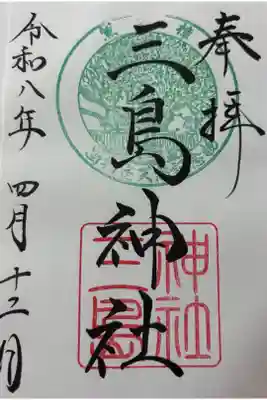 奉拝
三島神社
令和八年 四月 十二月
三島
神社